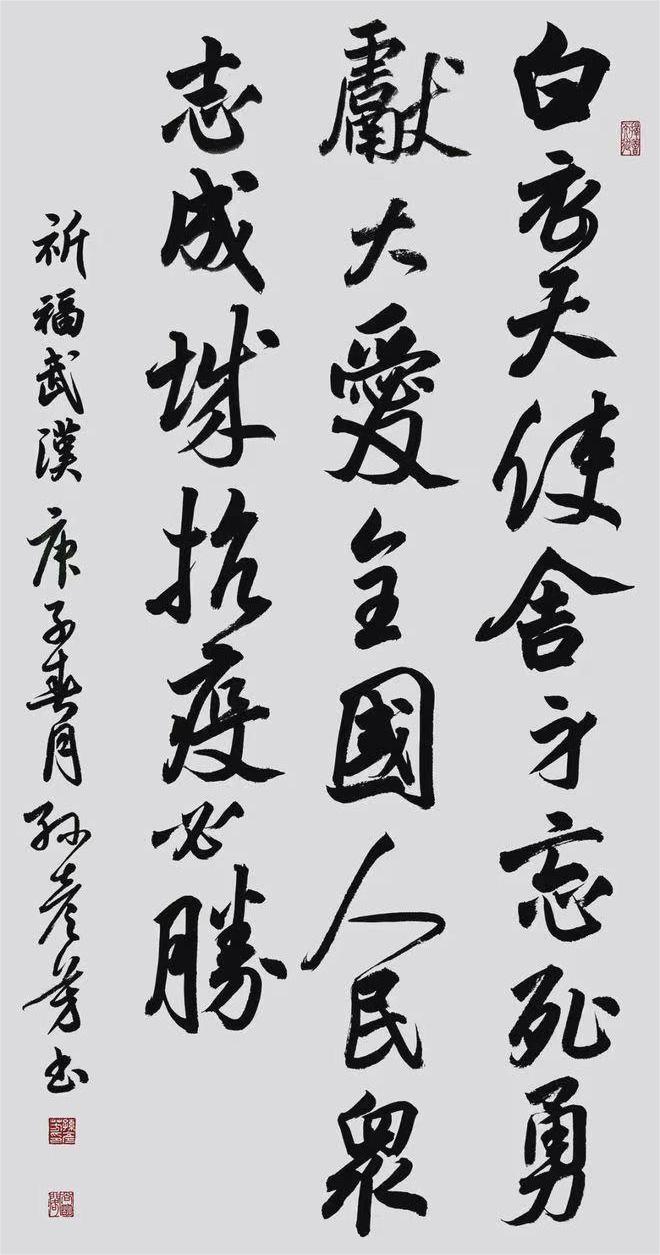 白衣天使舍身忘死勇
獻大愛全國人民衆
志成城抗疫必勝
祈福武漢 庚子春月 孙彦芳书